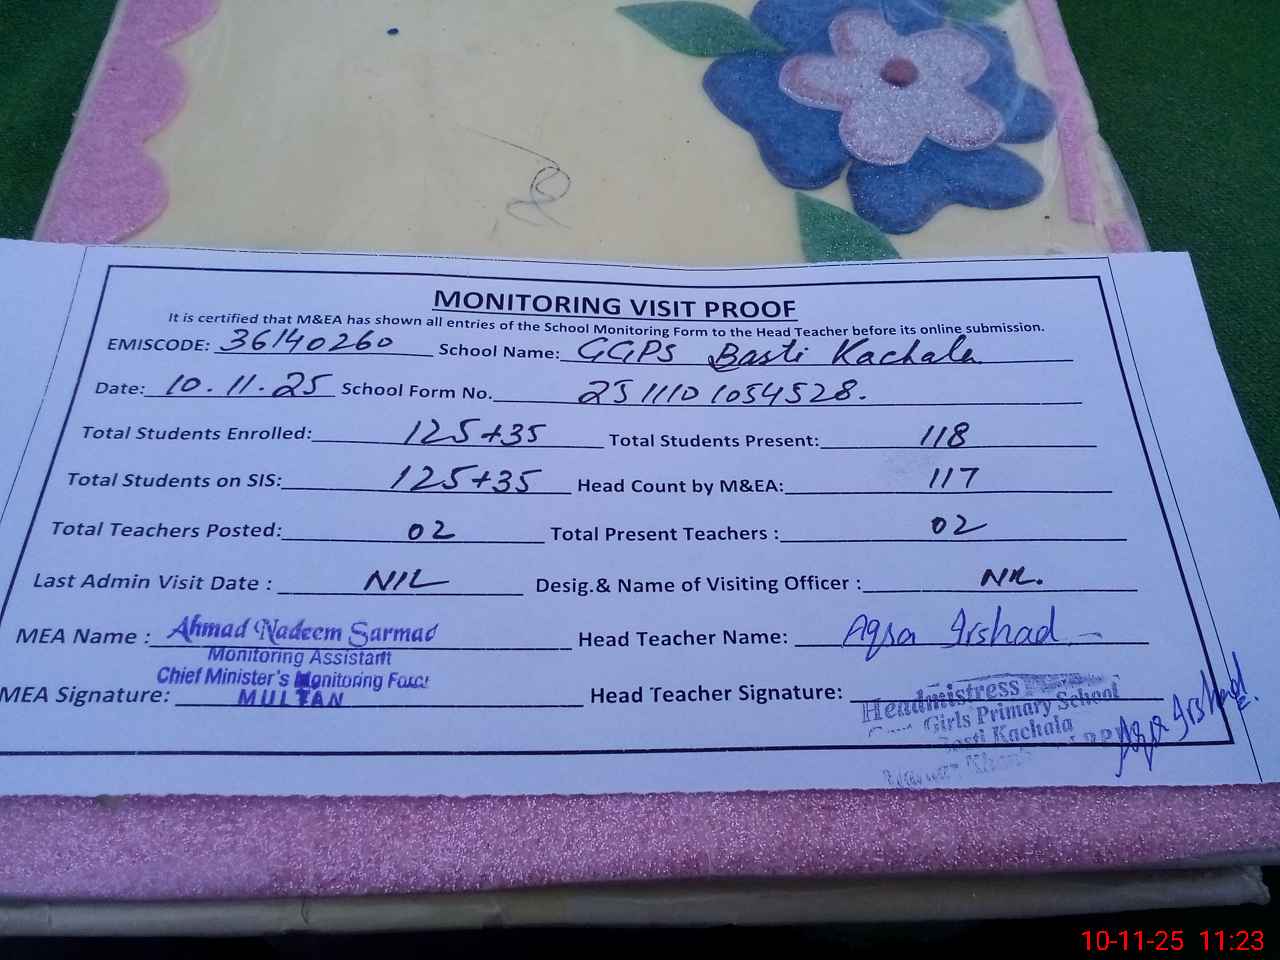 MONITORING VISIT PROOF
It is certified that M&EA has shown all entries of the School Monitoring Form to the Head Teacher before its online submission.
EMISCODE: 36140260 School Name: GGPS Basti Kachala
Date: 10.11.25 School Form No. 2511101054528.
Total Students Enrolled: 125+35 Total Students Present: 118
Total Students on SIS: 125+35 Head Count by M&EA: 117
Total Teachers Posted: 02 Total Present Teachers : 02
Last Admin Visit Date : NIL Desig.& Name of Visiting Officer : NIL.
MEA Name : Ahmad Nadeem Sarmad Head Teacher Name: Aqsa Irshad
Monitoring Assistant
Chief Minister's Monitoring Force
MULTAN
MEA Signature: Head Teacher Signature:
Headmistress
Girls Primary School
Basti Kachala
Aqsa Irshad
10-11-25 11:23